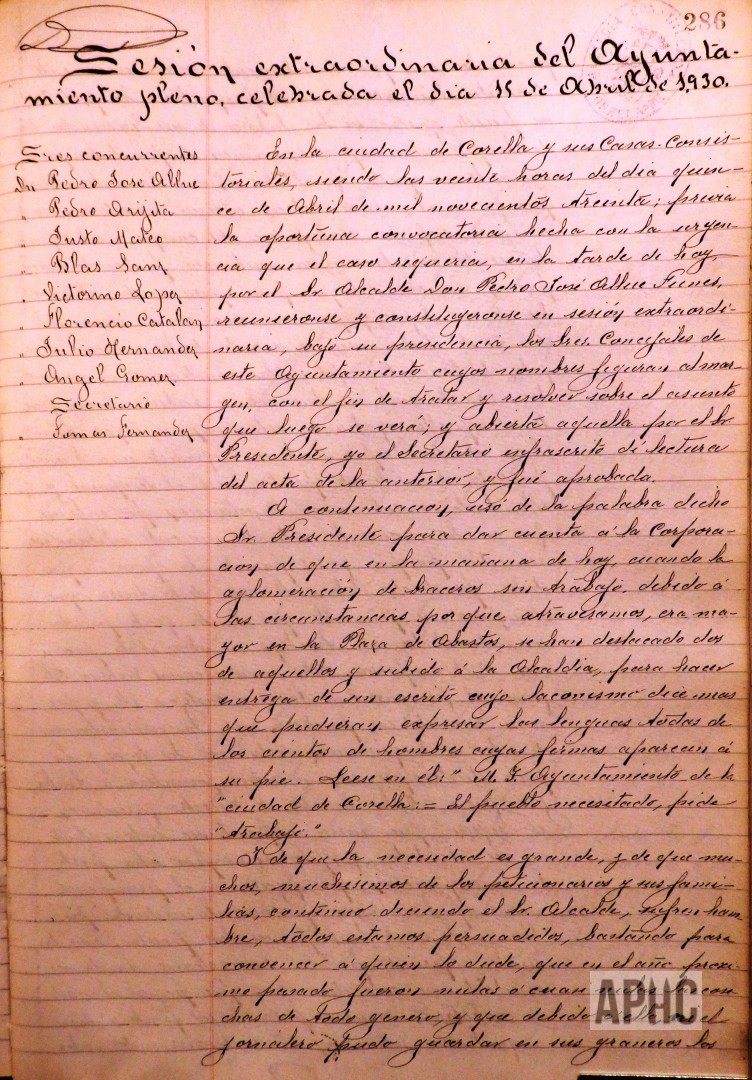 286
Sesión extraordinaria del Ayunta-
miento pleno, celebrada el dia 15 de Abril de 1,930.
Sres concurrentes
Dn Pedro José Allue
" Pedro Arijita
" Justo Mateo
" Blas Sanz
" Victorino Lopez
" Florencio Catalan
" Julio Hernandez
" Angel Gomez
Secretario
" Tomas Fernandez
En la ciudad de Corella y sus Casas-Consis-
toriales, siendo las veinte horas del dia quin-
ce de Abril de mil novecientos treinta; prévia
la oportuna convocatoria hecha con la urgen-
cia que el caso requeria, en la tarde de hoy,
por el Sr. Alcalde Don Pedro José Allue Funes,
reunieronse y constituyeronse en sesión extraordi-
naria, bajo su presidencia, los Sres. Concejales de
este Ayuntamiento cuyos nombres figuran al mar-
gen, con el fin de tratar y resolver sobre el asunto
que luego se verá; y abierta aquella por el Sr.
Presidente, yo el Secretario infrascrito dí lectura
del acta de la anterior, y fué aprobada.
A continuacion, usó de la palabra dicho
Sr. Presidente para dar cuenta á la Corpora-
cion de que en la mañana de hoy, cuando la
aglomeración de braceros sin trabajo, debido á
las circunstancias por que atravesamos, era ma-
yor en la Plaza de Abastos, se han destacado dos
de aquellos y subido á la Alcaldia, para hacer
entrega de un escrito cuyo laconismo dice mas
que pudieran expresar las lenguas todas de
los cientos de hombres cuyas firmas aparecen á
su pie. Leese en él: " M. I. Ayuntamiento de la
"ciudad de Corella: = El pueblo necesitado, pide
"trabajo."
Y de que la necesidad es grande, y de que mu-
chos, muchisimos de los peticionarios y sus fami-
lias, continuó diciendo el Sr. Alcalde, sufren ham-
bre, todos estamos persuadidos, bastando para
convencer á quien lo dude, que en el año proxi-
mo pasado fueron nulas ó cuasi
chas de todo genero, y que debido el
jornalero pudo guardar en sus graneros los
APHC